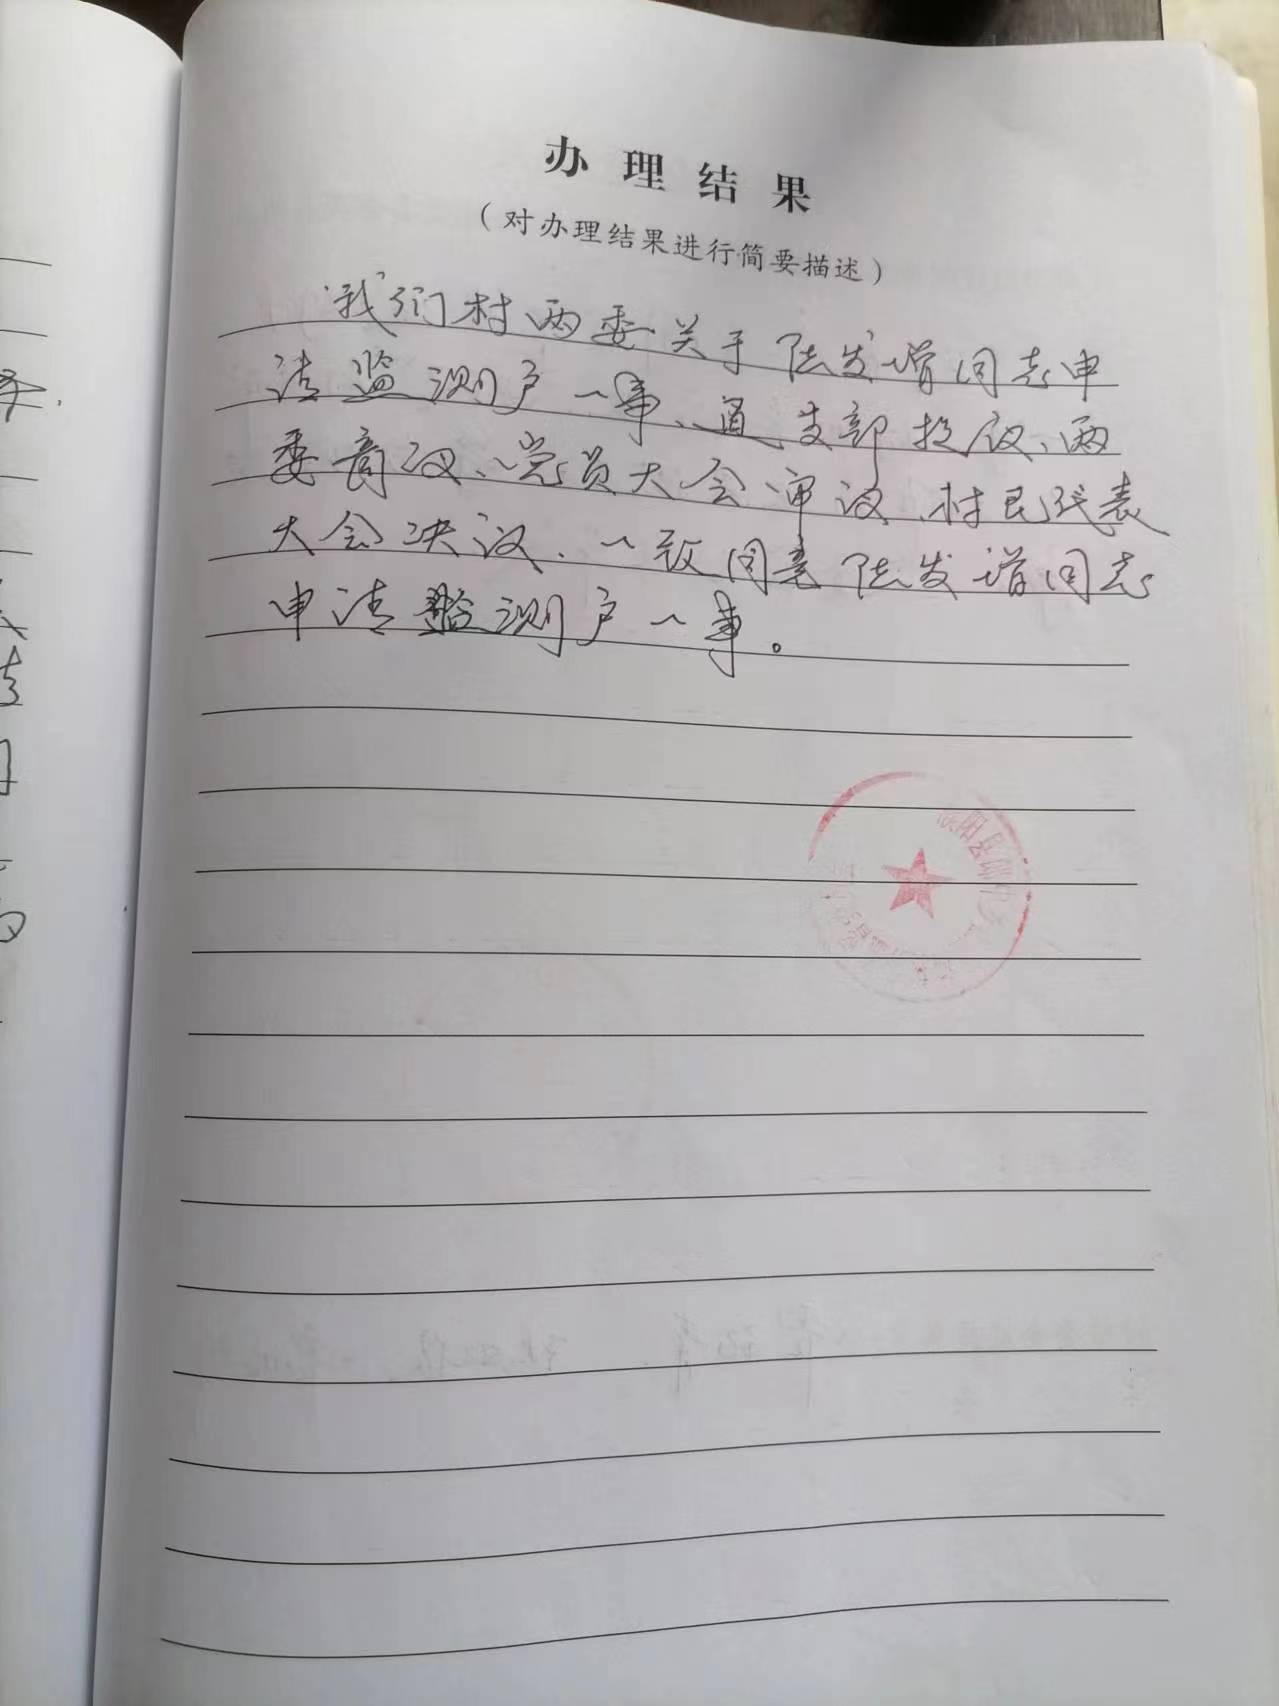 办理结果
（对办理结果进行简要描述）
我们村两委关于陆发增同志申
请监测户一事、通支部提议、两
委商议、党员大会审议、村民代表
大会决议、一致同意陆发增同志
申请监测户一事。
阳县